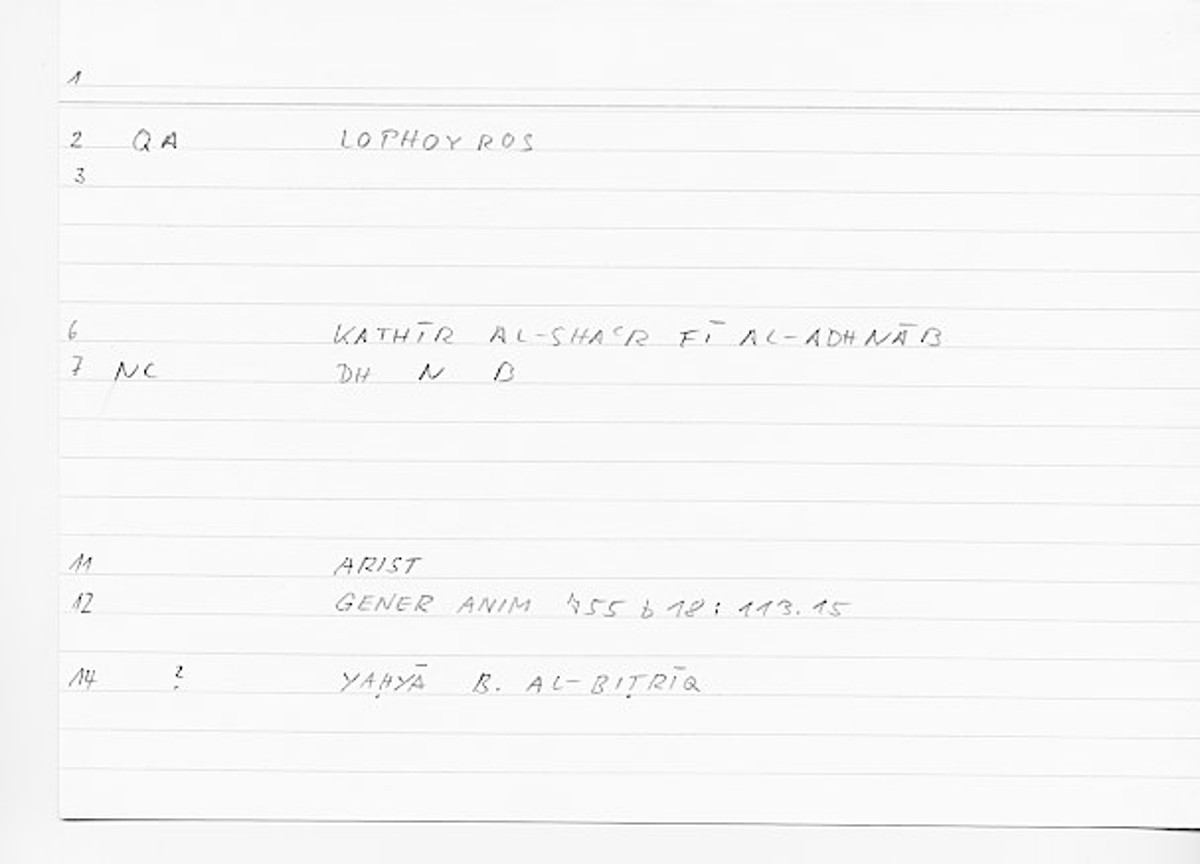 1
2 QA LOPHOYROS
3
6 KATHĪR AL-SHAʿR FĪ AL-ADHNĀB
7 NC DH N B
11 ARIST
12 GENER ANIM 755 b 18: 113.15
14 ? YAḤYĀ B. AL-BIṬRĪQ